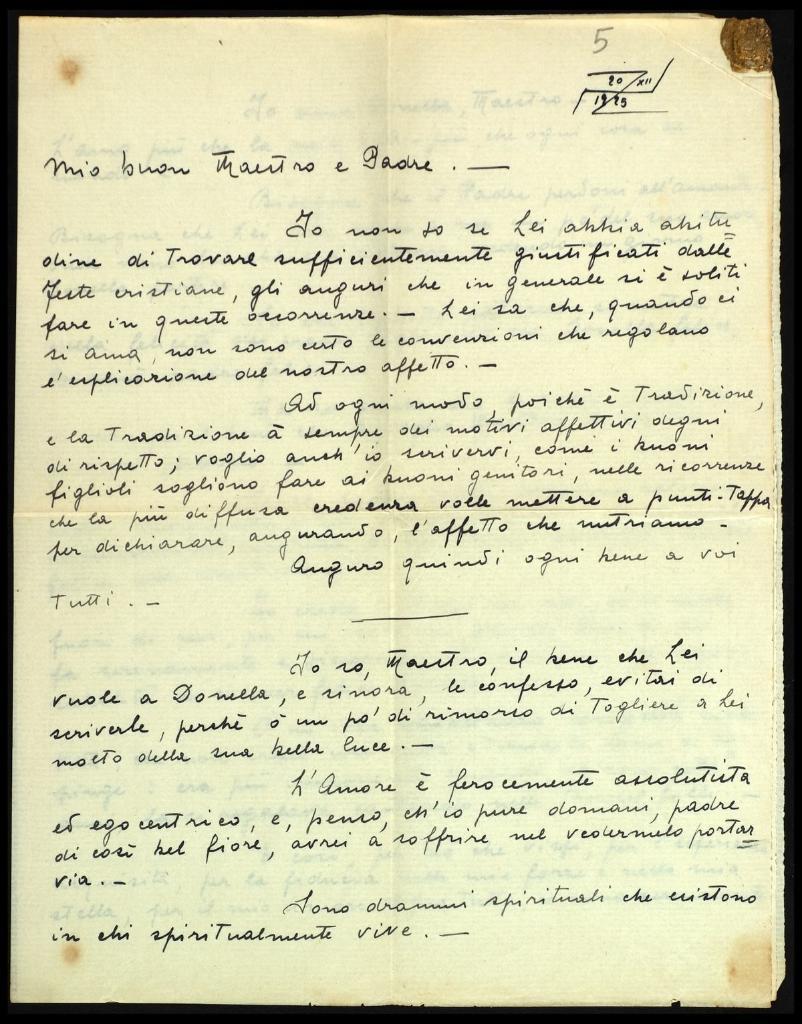 5
20/XII
1925
Mio buon Maestro e Padre. —
Io non so se Lei abbia abitu=
dine di trovare sufficientemente giustificati dalle
feste cristiane, gli auguri che in generale si è soliti
fare in queste occorrenze. — Lei sa che, quando ci
si ama, non sono certo le convenzioni che regolano
l'esplicazione del nostro affetto. —
Ad ogni modo, poichè è Tradizione,
e la Tradizione à sempre dei motivi affettivi degni
di rispetto; voglio anch'io scrivervi, come i buoni
figlioli sogliono fare ai buoni genitori, nelle ricorrenze
che la più diffusa credenza volle mettere a punti-tappa
per dichiarare, augurando, l'affetto che nutriamo -
Auguro quindi ogni bene a voi
Tutti. —
Io so, Maestro, il bene che Lei
vuole a Donella, e sinora, le confesso, evitai di
scriverle, perchè ò un po' di rimorso di Togliere a Lei
molto della sua bella luce. —
L'Amore è ferocemente assolutista
ed egocentrico, e, penso, ch'io pure domani, padre
di così bel fiore, avrei a soffrire nel vedermelo portar=
via. —
Sono drammi spirituali che esistono
in chi spiritualmente vive. —